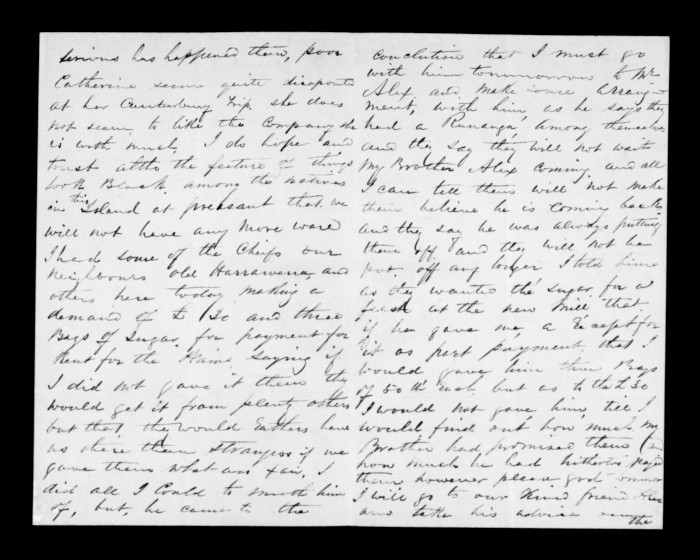 serious has happened there, poor
Catherine seems quite disapointed
at her Canterbury Trip she does
not seem, to like the Company she
is with much, I do hope and
trust altho the feature of things
look Black, among the natives
in this Island at preasant that we
will not have any more ward
I had some of the Cheifs our
neighbours old Harrawera, and
others here today making a
demand of £ 30 and three
Bags of Sugar, for payment for
Rent for the Plains Saying if
I did not gave it them they
would get it from plenty others
but that they would Eathers have
us there then Strangers if we
gave them what was fair, I
did all I Could to smooth him
of, but, he came to the
conclution that I must go
with him tommorrow to Mr
Alex and make some arrang-
ment, with him, as he says they
had a Runanga, among themselves
and they say they will not wait
My Brother Alex coming and all
I can tell them will not make
them believe he is coming back
and they say he was always putting
them off, and they will not be
put off any longer I told him
as they wanted the sugar for a
feast at the new Mill that
if he gave me a Receapt for
it as part payment, that I
would gave him three Bags
of 50 lb each but as to the £30
I would not gave him till I
would find out how much my
Brother had promised them and
how much he had hitherto payed
them, however please god
I will go to our Kind friend
and take his advise
the